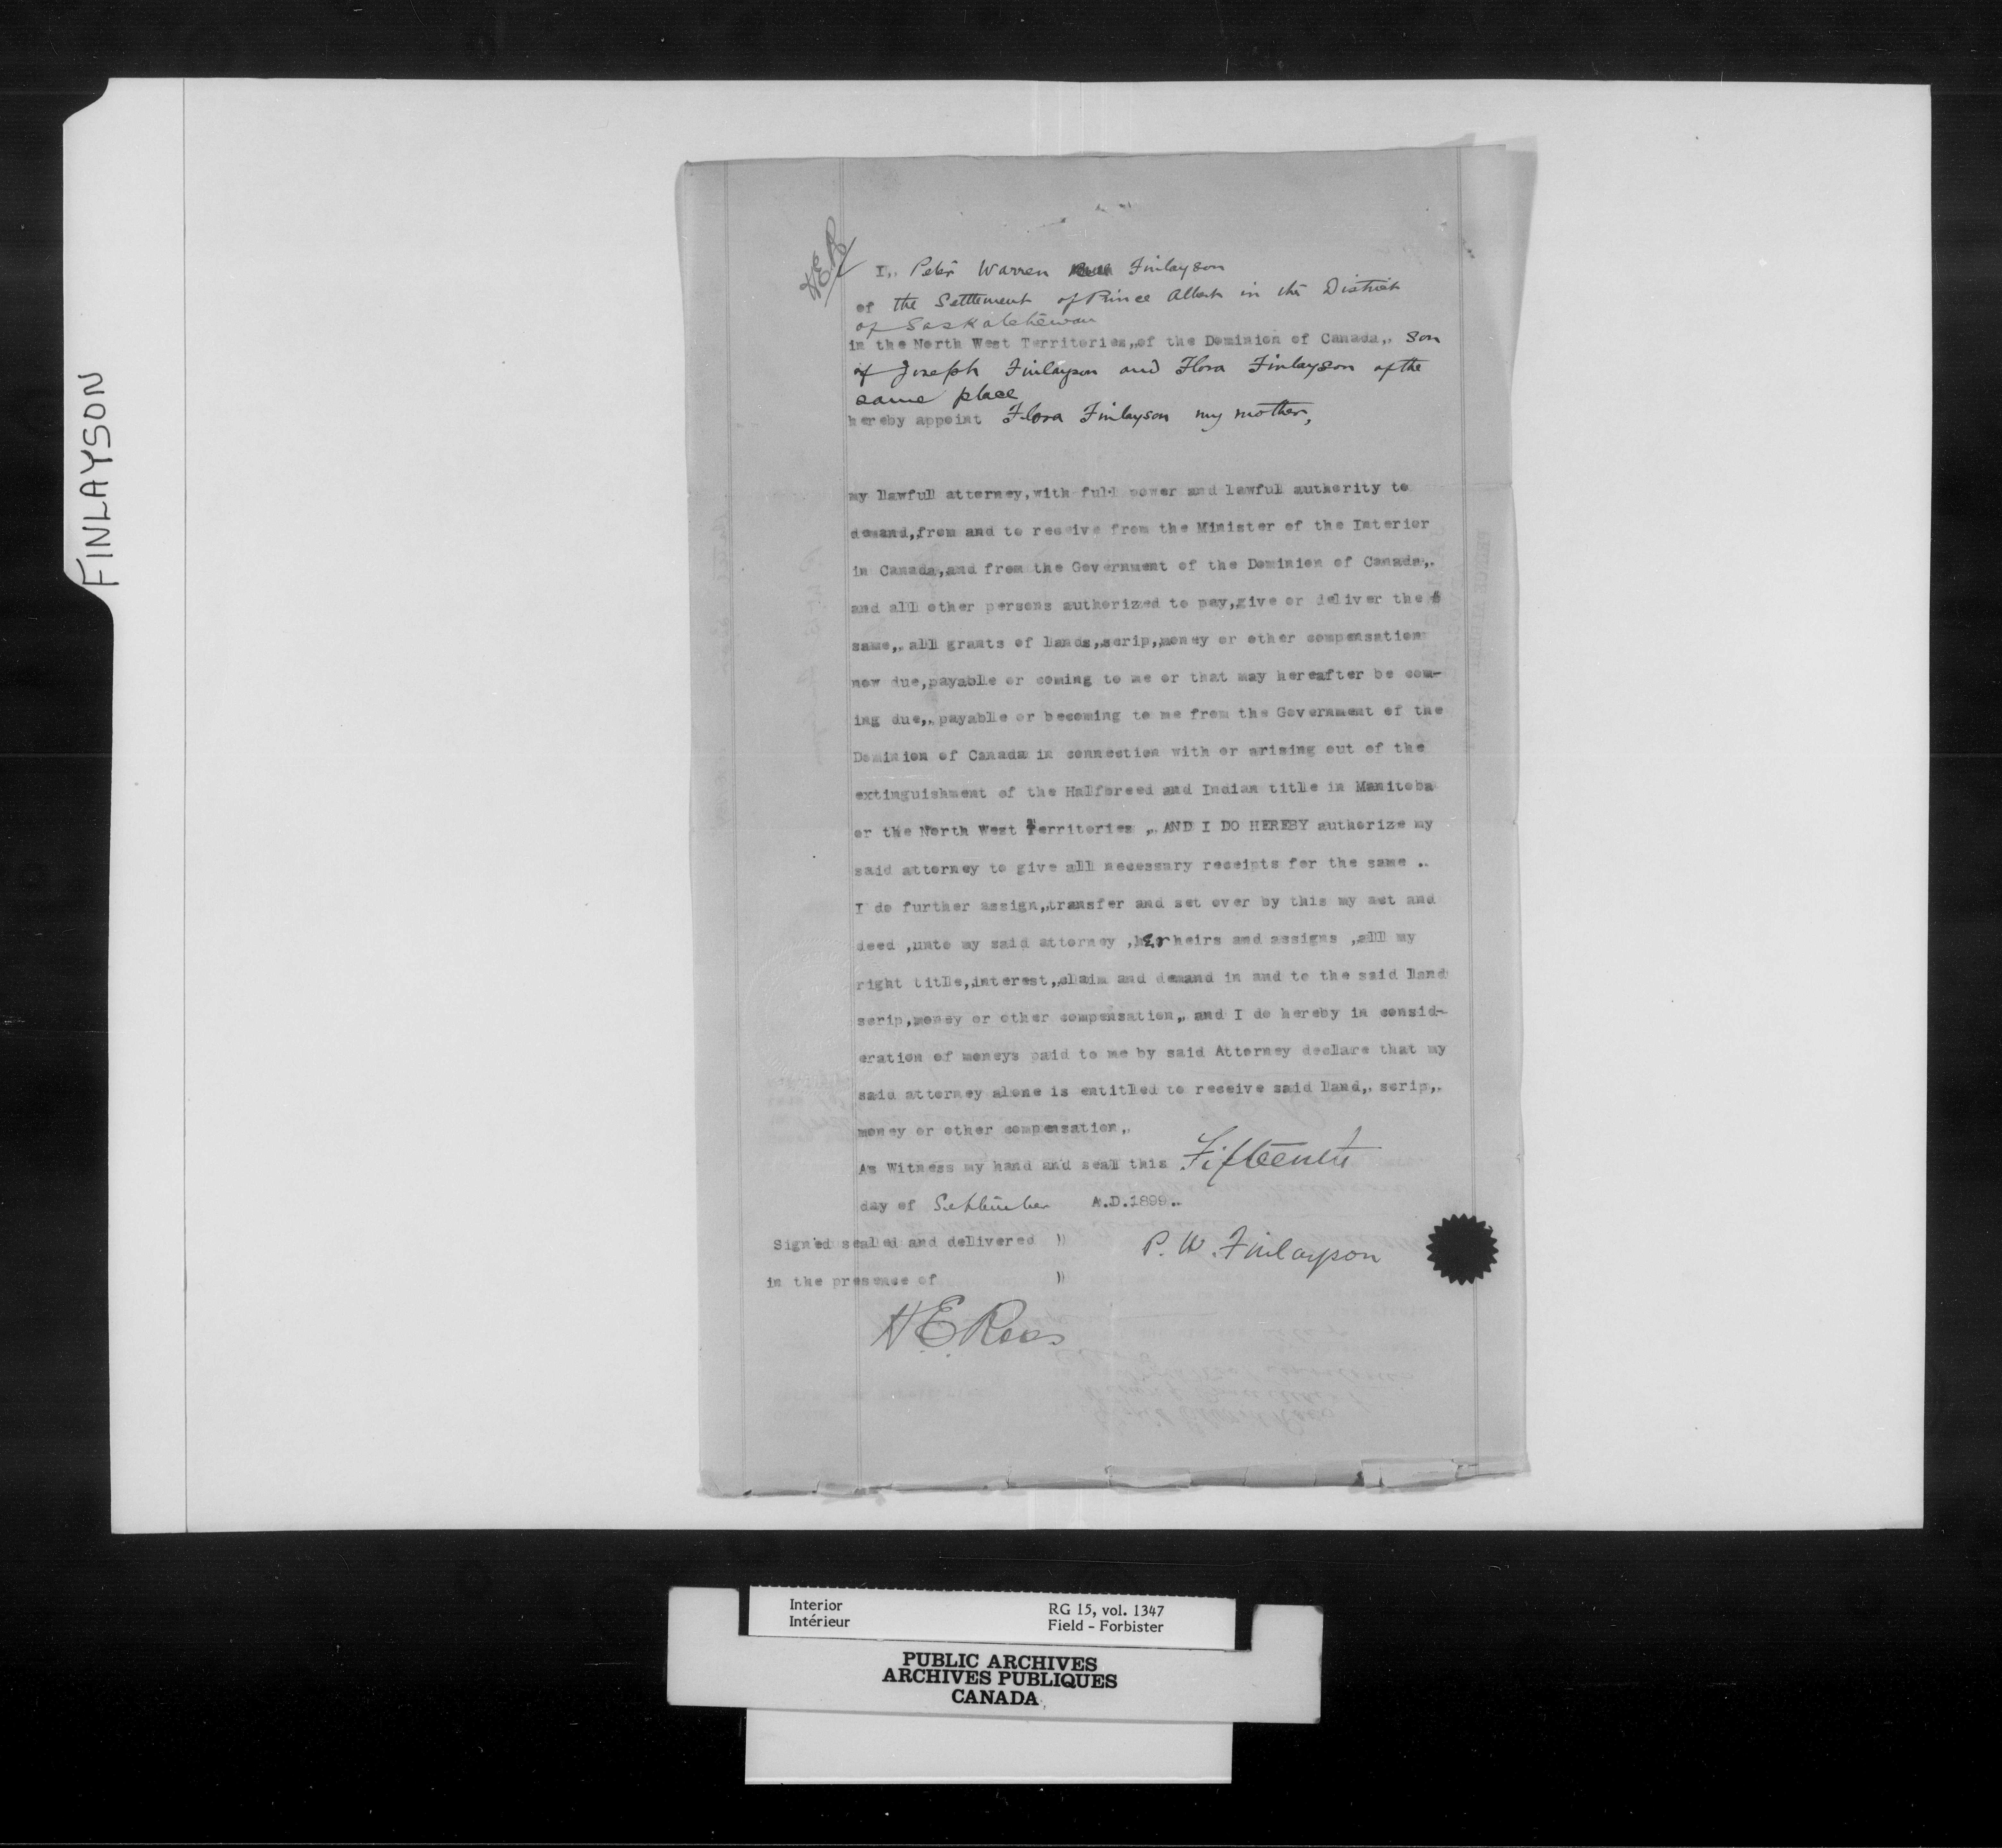 FINLAYSON
H.E.R.
I,, Peter Warren Finlayson
of the Settlement of Prince Albert in the District
of Saskatchewan
in the North West Territories,,of the Dominion of Canada,. Son
of Joseph Finlayson and Flora Finlayson of the
same place
hereby appoint Flora Finlayson my mother,
my lawful attorney,with full power and lawful authority to
demand,,from and to receive from the Minister of the Interior
in Canada,,and from the Government of the Dominion of Canada,.
and all other persons authorized to pay,,give or deliver the
same,. all grants of lands,,scrip,,money or other compensation
now due,payable or coming to me or that may hereafter be com-
ing due,. payable or becoming to me from the Government of the
Dominion of Canada in connection with or arising out of the
extinguishment of the Halfbreed and Indian title in Manitoba
or the North West Territories ,. AND I DO HEREBY authorize my
said attorney to give all necessary receipts for the same ..
I do further assign,,transfer and set over by this my act and
deed ,unto my said attorney ,her heirs and assigns ,all my
right title,,interest,,claim and demand in and to the said land
scrip,,money or other compensation,. and I do hereby in consid-
eration of moneys paid to me by said Attorney declare that my
said attorney alone is entitled to receive said land,. scrip,.
money or other compensation,.
As Witness my hand and seal this Fifteenth
day of September A.D.1899..
Signed sealed and delivered )
in the presence of )
P. W. Finlayson
H.E. Ross
Interior
Intérieur
RG 15, vol. 1347
Field - Forbister
PUBLIC ARCHIVES
ARCHIVES PUBLIQUES
CANADA